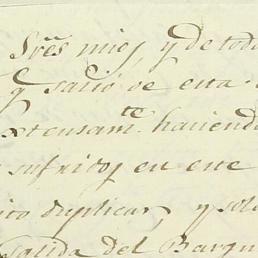 Sres mios, y de tod
q salió de esta
extensam.te haviend
sufridos en este
duplicar, y sol
salida del Barqu